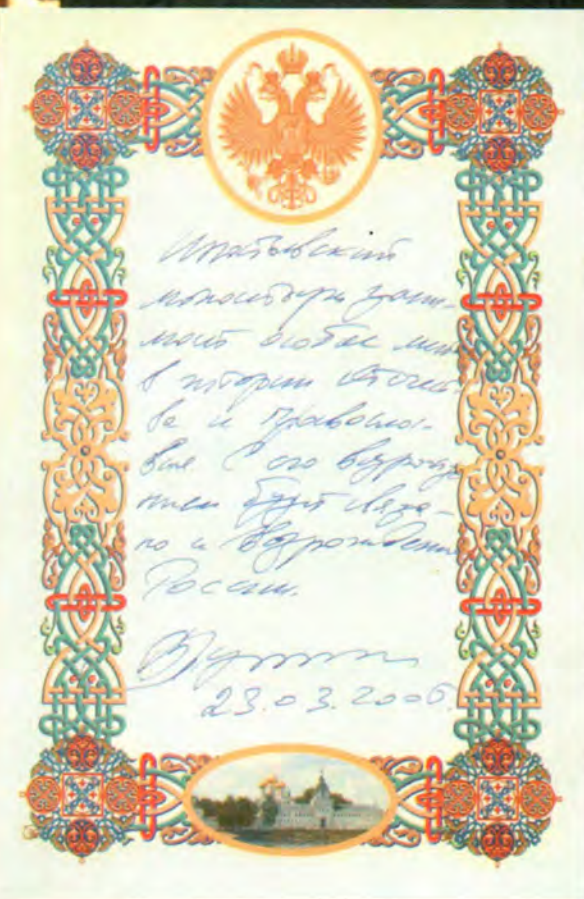 Ипатьевский
монастырь зани-
мает особое место
в истории Отечест
ва и правосла-
вия. С его возрожде
нием будет связа-
но и возрождение
России.
ВПутин
23.03.2005.